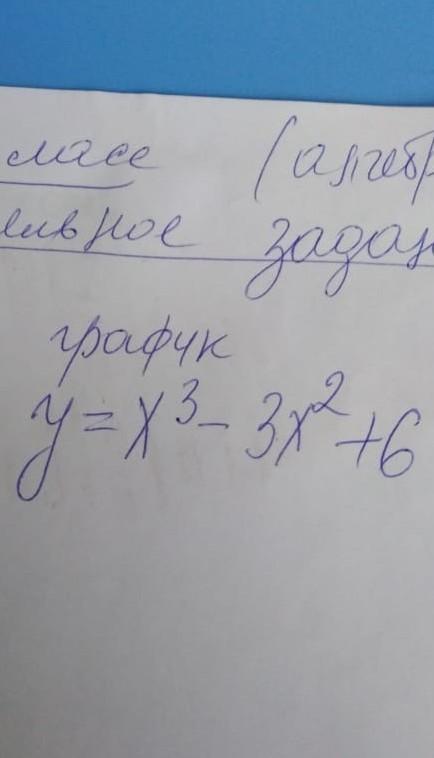 ласс (алгебр
ельное задан
график
y = x³ - 3x² + 6